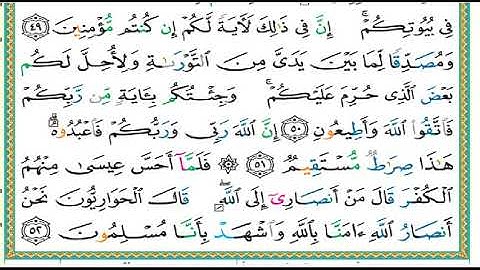 فِي بُيُوتِكُمْۚ إِنَّ فِي ذَٰلِكَ لَآيَةً لَّكُمْ إِن كُنتُم مُّؤْمِنِينَ ﴿٤٩﴾
وَمُصَدِّقًا لِّمَا بَيْنَ يَدَيَّ مِنَ التَّوْرَاةِ وَلِأُحِلَّ لَكُم
بَعْضَ الَّذِي حُرِّمَ عَلَيْكُمْۚ وَجِئْتُكُم بِآيَةٍ مِّن رَّبِّكُمْ
فَاتَّقُوا اللَّهَ وَأَطِيعُونِ ﴿٥٠﴾ إِنَّ اللَّهَ رَبِّي وَرَبُّكُمْ فَاعْبُدُوهُۗ
هَٰذَا صِرَاطٌ مُّسْتَقِيمٌ ﴿٥١﴾ ۞ فَلَمَّا أَحَسَّ عِيسَىٰ مِنْهُمُ
الْكُفْرَ قَالَ مَنْ أَنصَارِي إِلَى اللَّهِۖ قَالَ الْحَوَارِيُّونَ نَحْنُ
أَنصَارُ اللَّهِ ءَامَنَّا بِاللَّهِ وَاشْهَدْ بِأَنَّا مُسْلِمُونَ ﴿٥٢﴾